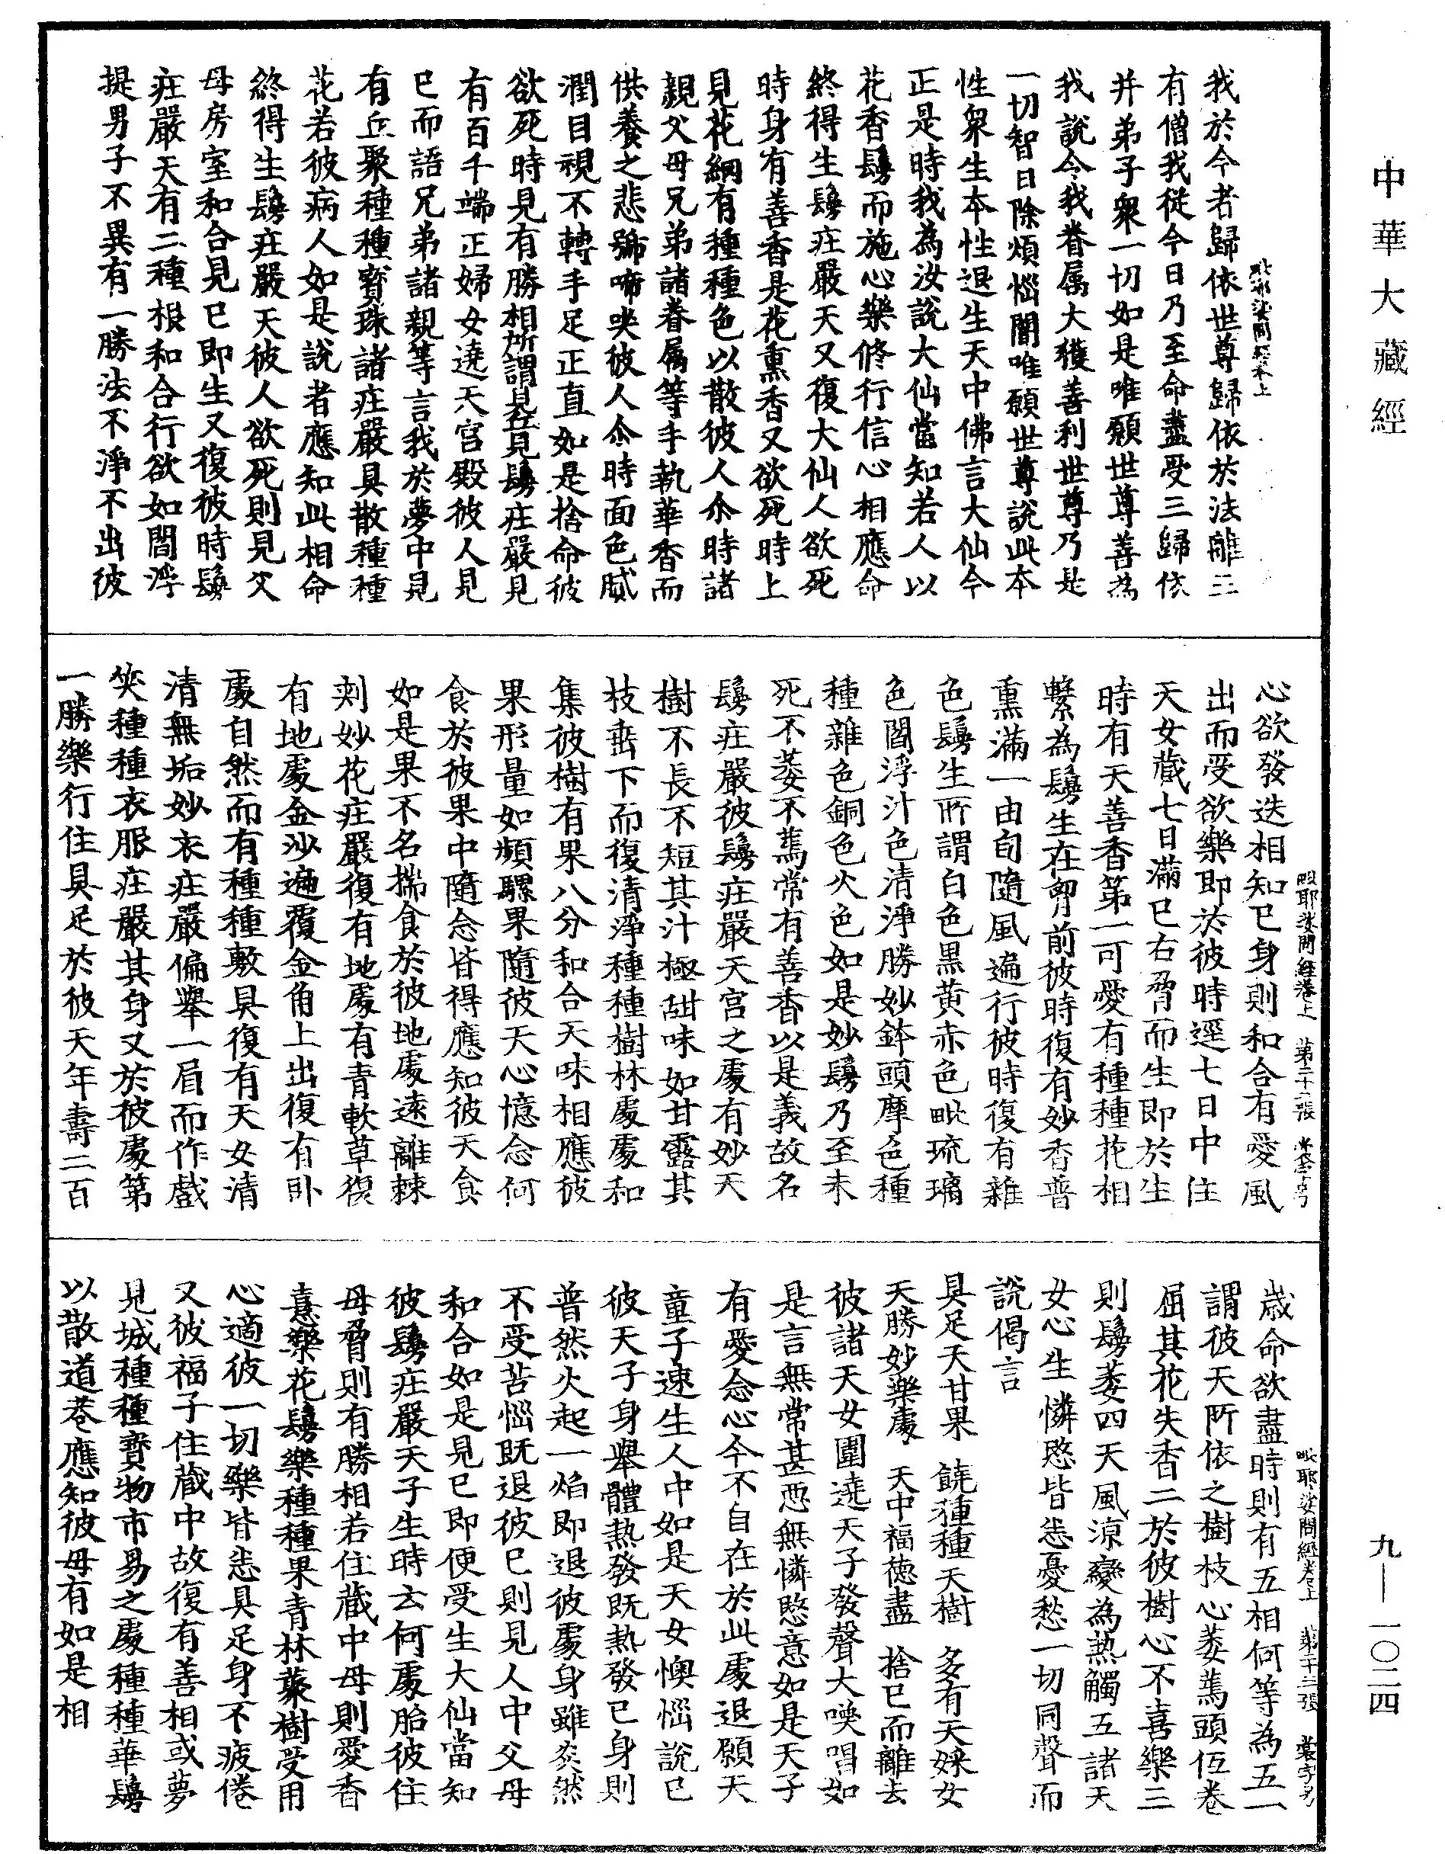 中華大藏經
毗耶娑問經卷上
我於今者歸依世尊歸依於法離三
有僧我從今日乃至命盡受三歸依
并弟子衆一切如是唯願世尊善為
我說今我眷屬大獲善利世尊乃是
一切智日除煩惱闇唯願世尊說此本
性衆生本性退生天中佛言大仙今
正是時我為汝說大仙當知若人以
花香鬘而施心樂修行信心相應命
終得生鬘莊嚴天又復大仙人欲死
時身有善香是花熏香又欲死時上
見花網有種種色以散彼人尒時諸
親父母兄弟諸眷屬等手執華香而
供養之悲號啼哭彼人尒時面色膩
潤目視不轉手足正直如是捨命彼
欲死時見有勝相所謂見鬘莊嚴見
有百千端正婦女遶天宮殿彼人見
已而語兄弟諸親等言我於夢中見
有丘聚種種寶珠諸莊嚴具散種種
花若彼病人如是說者應知此相命
終得生鬘莊嚴天彼人欲死則見父
母房室和合見已即生又復彼時鬘
莊嚴天有二種根和合行欲如閻浮
提男子不異有一勝法不淨不出彼
毗耶娑問經卷上 第二十二張
心欲發迭相知已身則和合有愛風
出而受欲樂即於彼時逕七日中住
天女藏七日滿已右脅而生即於生
時有天善香第一可愛有種種花相
繫為鬘生在胷前彼時復有妙香普
熏滿一由旬隨風遍行彼時復有雜
色鬘生所謂白色黑黃赤色毗琉璃
色閻浮汁色清淨勝妙鉢頭摩色種
種雜色銅色火色如是妙鬘乃至未
死不萎不蔫常有善香以是義故名
鬘莊嚴彼鬘莊嚴天宮之處有妙天
樹不長不短其汁極甜味如甘露其
枝垂下而復清淨種種樹林處處和
集彼樹有果八分和合天味相應彼
果形量如頻騾果隨彼天心憶念何
食於彼果中隨念皆得應知彼天食
如是果不名揣食於彼地處遠離棘
刺妙花莊嚴復有地處有青軟草復
有地處金沙遍覆金角上出復有卧
處自然而有種種敷具復有天女清
清無垢妙衣莊嚴偏舉一眉而作戲
笑種種衣服莊嚴其身又於彼處第
一勝樂行住具足於彼天年壽二百
毗耶娑問經卷上 第二十三張
歲命欲盡時則有五相何等為五一
謂彼天所依之樹枝心萎蔫頭仾卷
屈其花失香二於彼樹心不喜樂三
則鬘萎四天風涼變為熱觸五諸天
女心生憐愍皆悉憂愁一切同聲而
說偈言
具足天甘果 饒種種天樹 多有天婇女
天勝妙樂處 天中福德盡 捨已而離去
彼諸天女圍遶天子發聲大喚唱如
是言無常甚惡無憐愍意如是天子
有愛念心今不自在於此處退願天
童子速生人中如是天女懊惱說已
彼天子身舉體熱發既熱發已身則
普然火起一焰即退彼處身雖炎然
不受苦惱既退彼已則見人中父母
和合如是見已即便受生大仙當知
彼鬘莊嚴天子生時云何處胎彼住
母脅則有勝相若住藏中母則愛香
憙樂花鬘樂種種果青林藂樹受用
心適彼一切樂皆悉具足身不疲倦
又彼福子住藏中故復有善相或夢
見城種種寶物市易之處種種華鬘
以散道巷應知彼母有如是相
九—一〇二四